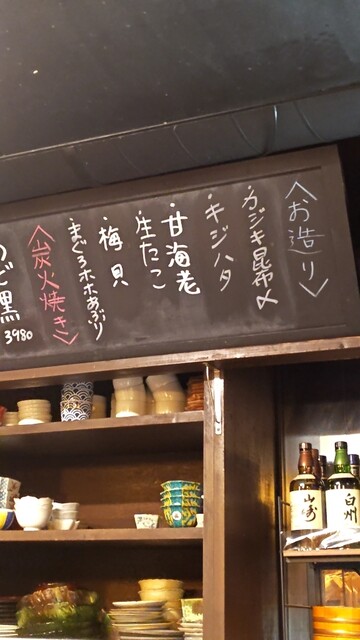 〈お造り〉
・カジキ昆布〆
・キジハタ
・甘海老
・生たこ
・梅貝
・まぐろホホあぶり
〈炭火焼き〉
のど黒
3980
山崎
白州